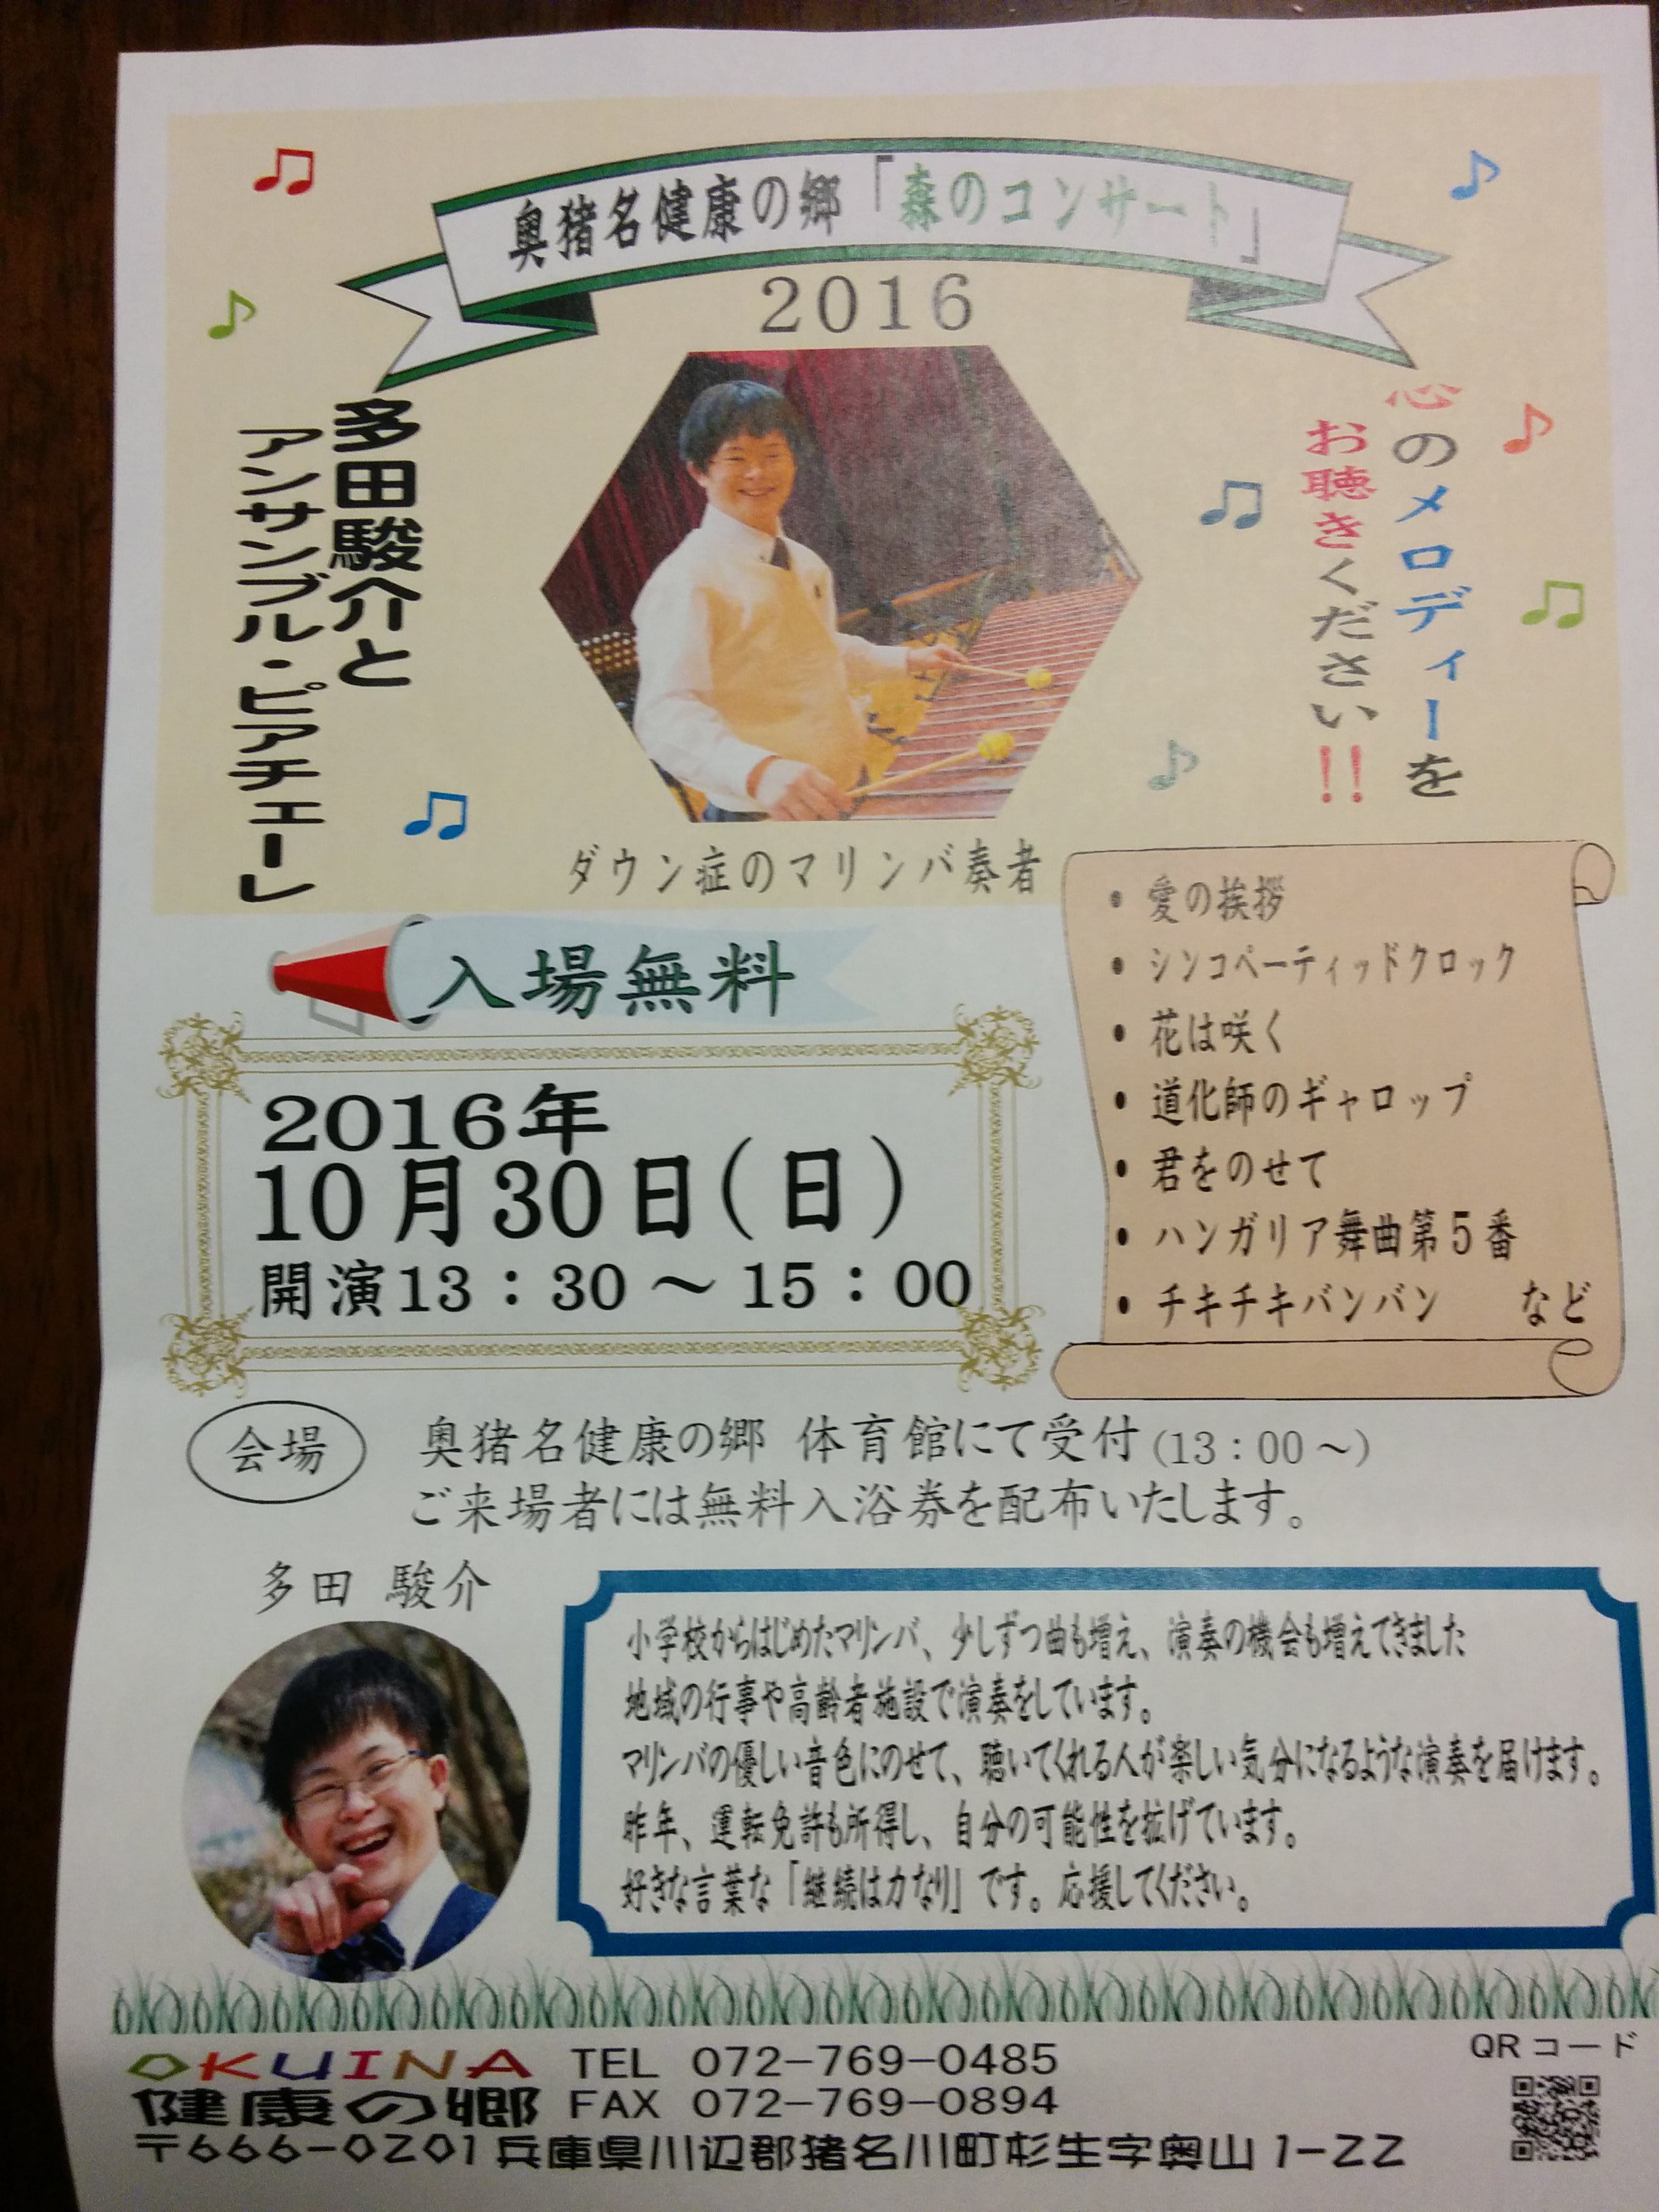 奥猪名健康の郷「森のコンサート」
2016
心のメロディーを
お聴きください!!
多田駿介と
アンサンブル・ピアチェーレ
ダウン症のマリンバ奏者
入場無料
2016年
10月30日(日)
開演13：30～15：00
• 愛の挨拶
• シンコペーティッドクロック
• 花は咲く
• 道化師のギャロップ
• 君をのせて
• ハンガリア舞曲第5番
• チキチキバンバン など
会場 奥猪名健康の郷 体育館にて受付(13：00～)
ご来場者には無料入浴券を配布いたします。
多田 駿介
小学校からはじめたマリンバ、少しずつ曲も増え、演奏の機会も増えてきました
地域の行事や高齢者施設で演奏をしています。
マリンバの優しい音色にのせて、聴いてくれる人が楽しい気分になるような演奏を届けます。
昨年、運転免許も所得し、自分の可能性を拡げています。
好きな言葉な「継続は力なり」です。応援してください。
OKUINA TEL 072-769-0485
健康の郷 FAX 072-769-0894
〒666-0201兵庫県川辺郡猪名川町杉生字奥山1-22
QRコード